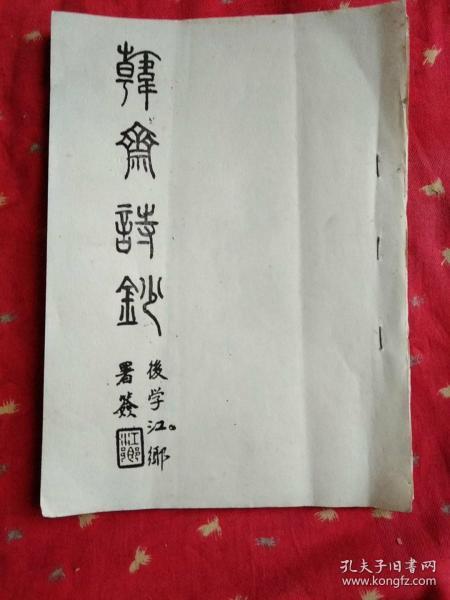 韓齋詩鈔
後学江鄉
署簽
江鄉
孔夫子旧书网
www.kongfz.com